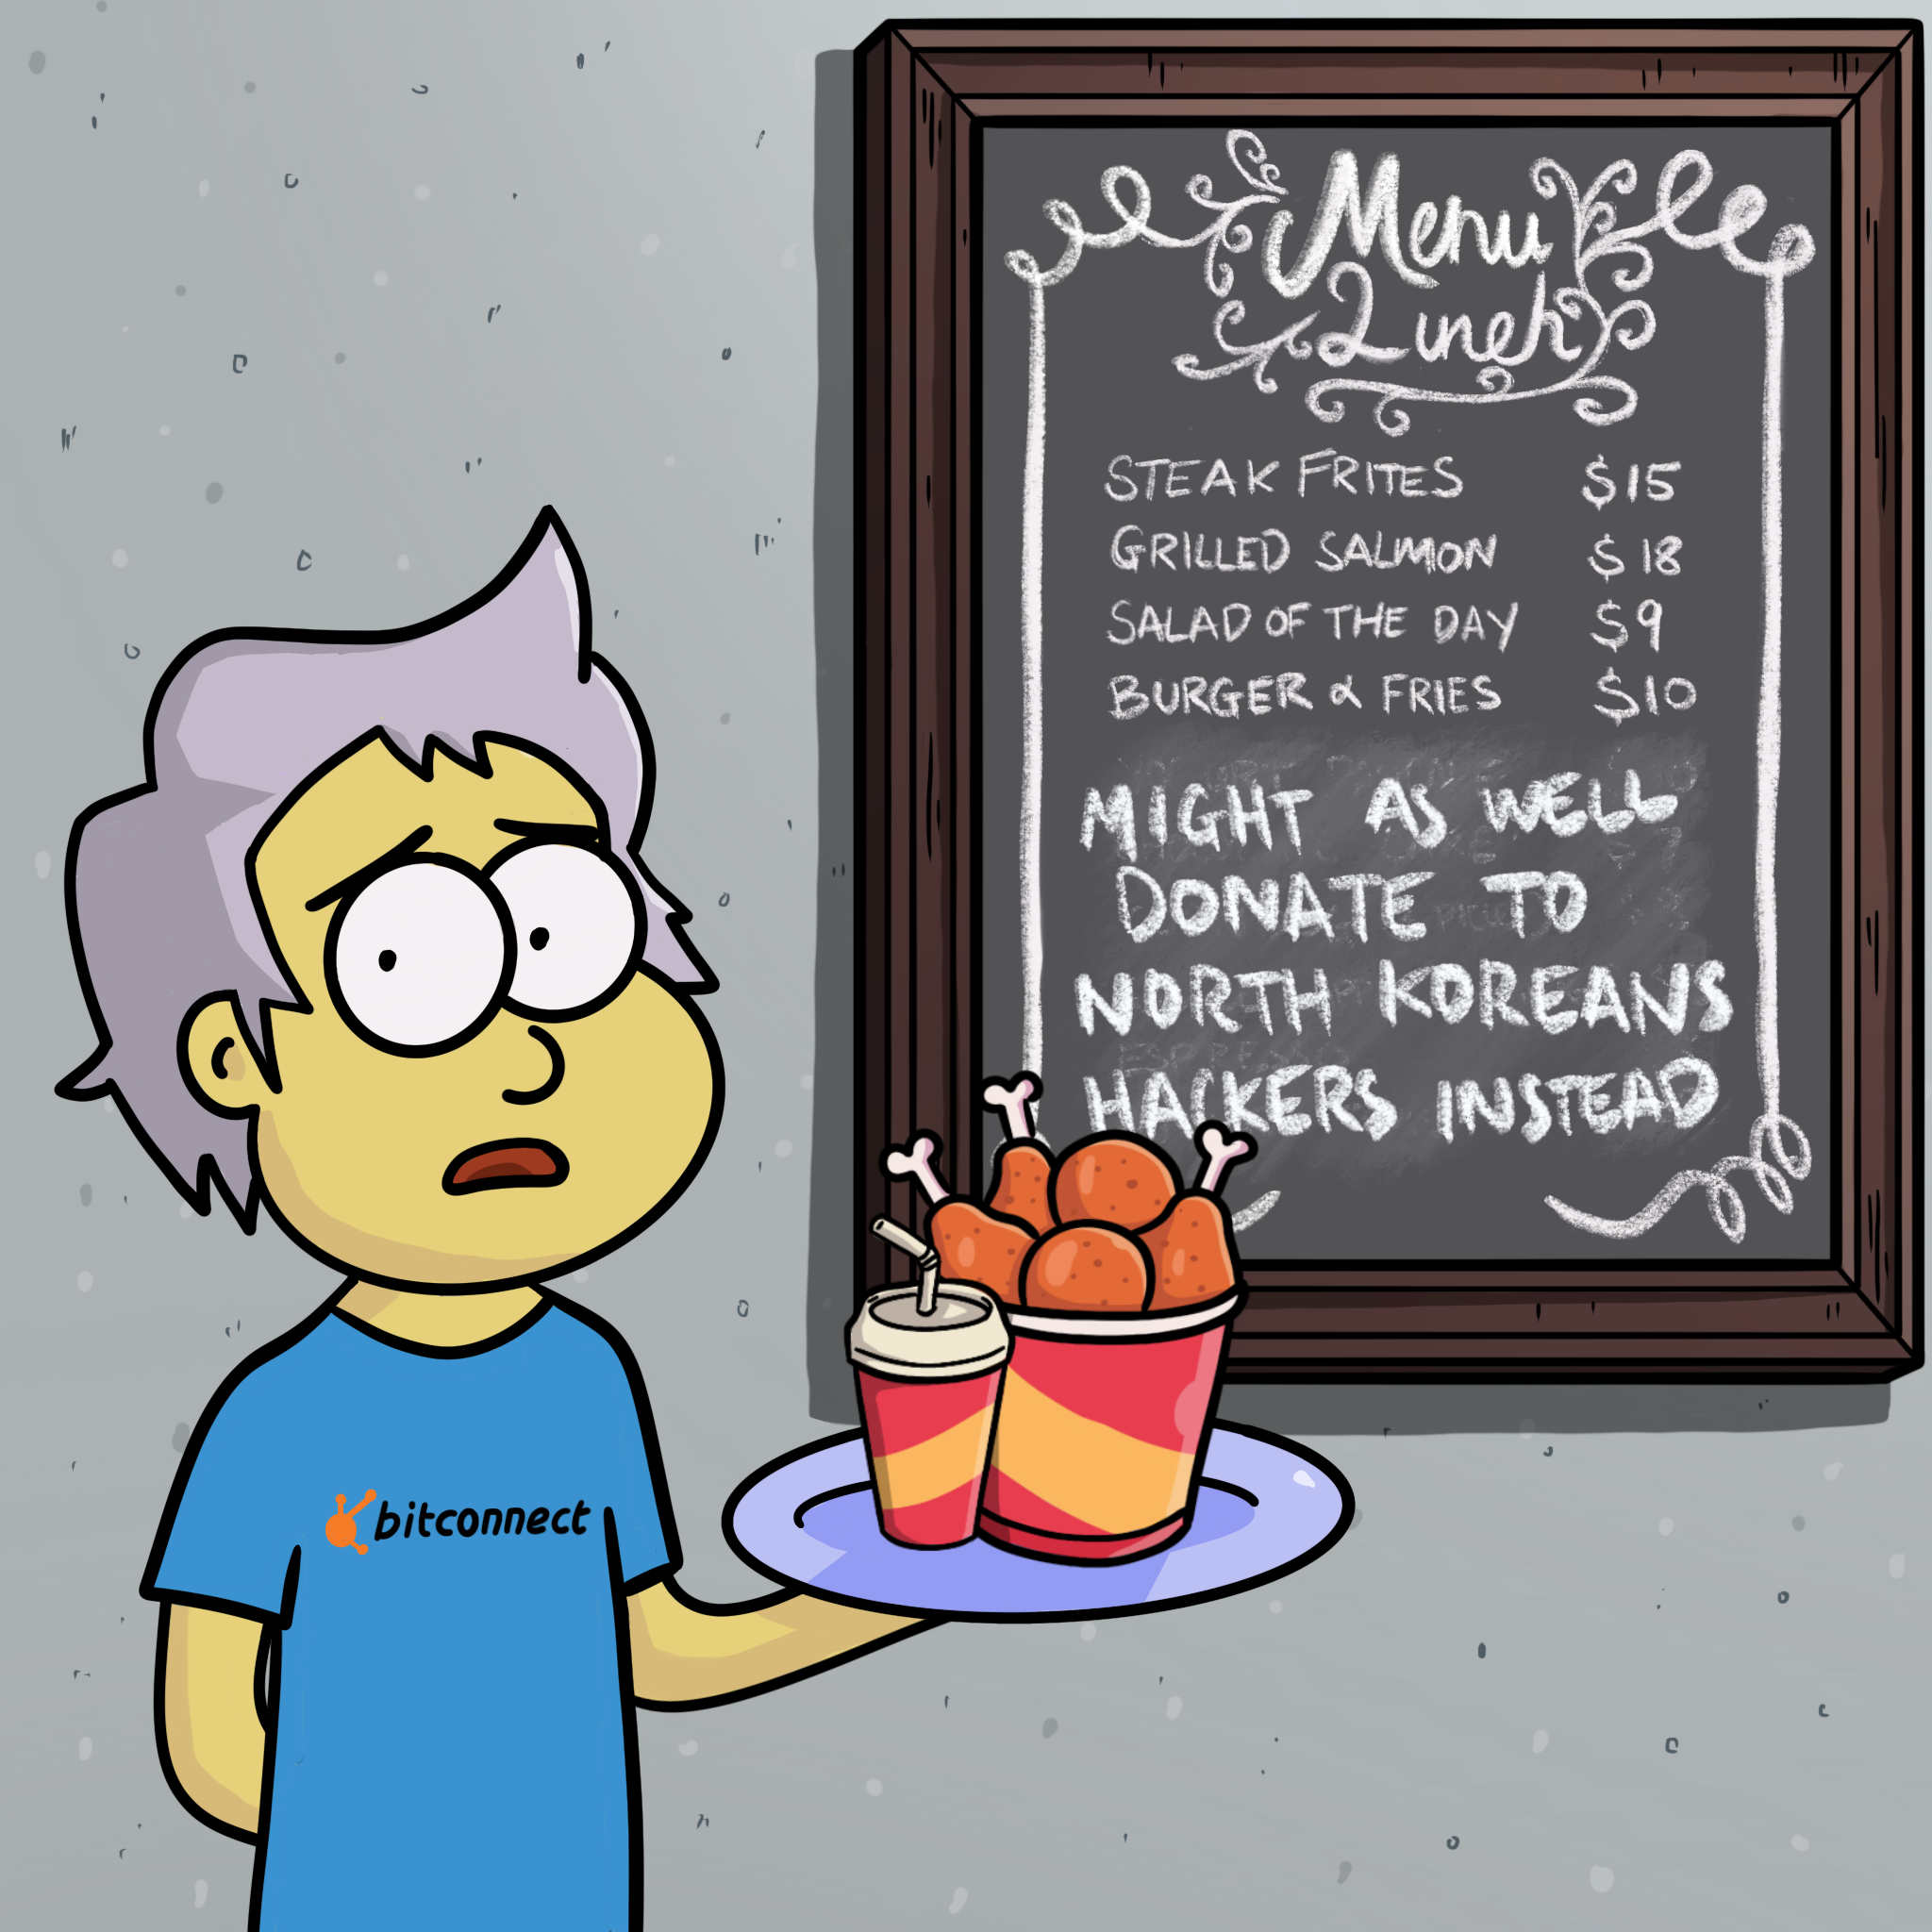 Menu
Lunch
STEAK FRITES $15
GRILLED SALMON $18
SALAD OF THE DAY $9
BURGER & FRIES $10
MIGHT AS WELL
DONATE TO
NORTH KOREANS
HACKERS INSTEAD
bitconnect